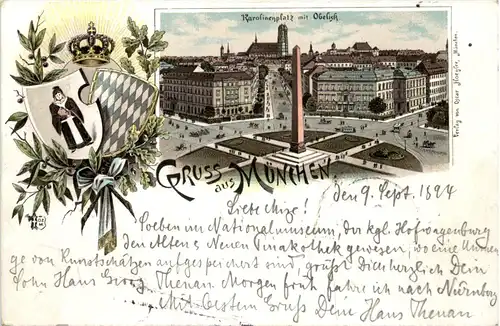 Karolinenplatz mit Obelisk
Verlag von Ottmar Zieher, München.
GRUSS aus MÜNCHEN.
den 9. Sept. 1894
Liebe Mize!
Soeben im Nationalmuseum, der kgl. Hofwagenburg
den Alten & Neuen Pinakothek gewesen, wo eine Unmen-
ge von Kunstschätzen aufgespeichert sind, grüßt Dich herzlich Dein
Sohn Hans Georg Thenau. Morgen früh fahre ich nach Nürnberg
Mit bestem Gruss Dein Hans Thenau